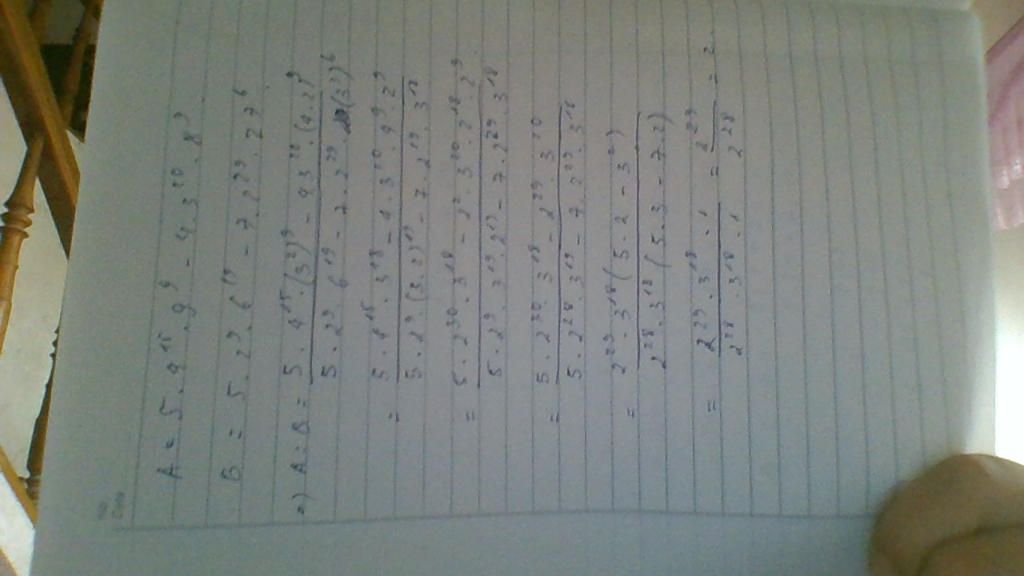 A = 5 . 4^15 . 9^9 - 4 . 3^20 . 8^9
B = 5 . 2^9 . 6^19 - 7 . 2^29 . 27^6
=) A : B = \frac{5 . 4^15 . (3^2)^9 - 4 3^20 . (4.2)^9}{5 . 2^9 6^19 - 7 . 2^29 . (3^3)^6}
= \frac{5 . 4^15 . 3^18 - 4 . 3^20 . 4^9 . 2^9}{5 . 2^9 . (3.2)^19 - 7 . 2^29 . 3^18}
= \frac{5 . 2^30 . 3^18 - 2^2 . 3^20 . 2^18 . 2^9}{5 . 2^9 . 3^19 . 2^19 - 7 . 2^29 . 3^18}
= \frac{5 . 2^30 . 3^18 - 2^29 . 3^20}{5 . 2^28 . 3^19 - 7 . 2^29 . 3^18}
= \frac{2^29 . 3^18 (5 . 2 - 3^2)}{2^28 . 3^18 (5 . 3 - 7 . 2)}
= \frac{2^29 . 3^18 . 1}{2^28 . 3^18 . 1} = \frac{2^29}{2^28} = 2.